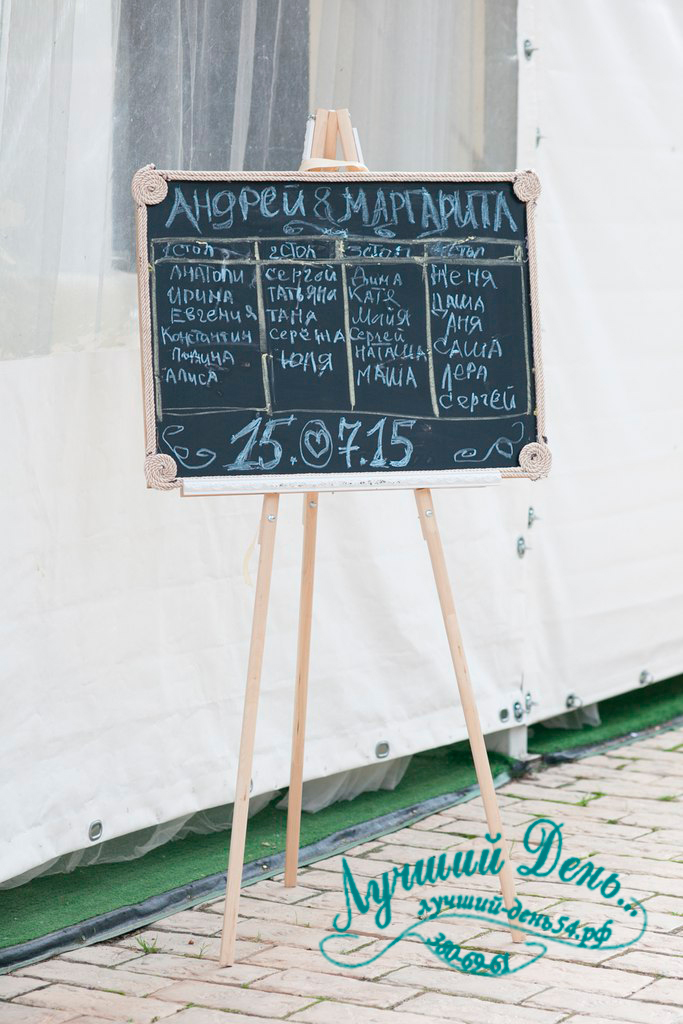 АНДРЕЙ & МАРГАРИТА
1 СТОЛ 2 СТОЛ 3 СТОЛ СТОЛ
АНАТОЛИ СЕРГЕЙ Дима Женя
Ирина ТАТЬЯНА КАТЯ ДАША
ЕВГЕНИЯ ТАНА МАЙЯ АНЯ
Константин СЕРЁЖА Сергей САША
ЮЛЯ НАТАША ЛЕРА
АЛИСА МАША СЕРГЕЙ
15.07.15
Лучший День...
лучший-день54.рф
380-69-61